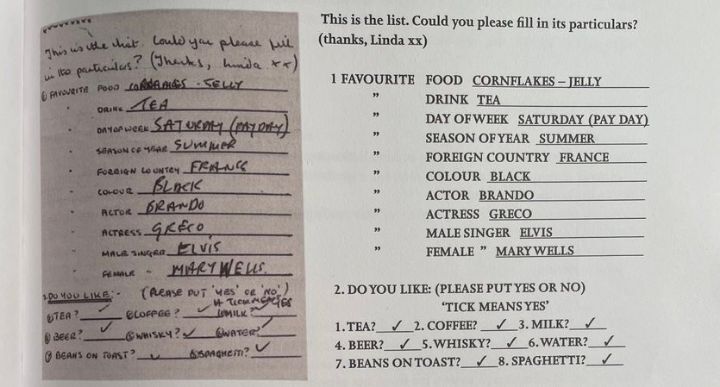 This is the list. Could you please fill
in its particulars? (Thanks, Linda xx)
① FAVOURITE FOOD CORNFLAKES - JELLY
" DRINK TEA
" DAY OF WEEK SATURDAY (PAY DAY)
" SEASON OF YEAR SUMMER
" FOREIGN COUNTRY FRANCE
" COLOUR BLACK
" ACTOR BRANDO
" ACTRESS GRECO
" MALE SINGER ELVIS
" FEMALE " MARY WELLS
2. DO YOU LIKE:- (PLEASE PUT 'YES' OR 'NO')
A TICK MEANS YES
① TEA? ✓ ② COFFEE? ✓ ③ MILK? ✓
④ BEER? ✓ ⑤ WHISKY? ✓ ⑥ WATER? ✓
⑦ BEANS ON TOAST? ✓ ⑧ SPAGHETTI? ✓
This is the list. Could you please fill in its particulars?
(thanks, Linda xx)
1 FAVOURITE FOOD CORNFLAKES – JELLY
" DRINK TEA
" DAY OF WEEK SATURDAY (PAY DAY)
" SEASON OF YEAR SUMMER
" FOREIGN COUNTRY FRANCE
" COLOUR BLACK
" ACTOR BRANDO
" ACTRESS GRECO
" MALE SINGER ELVIS
" FEMALE " MARY WELLS
2. DO YOU LIKE: (PLEASE PUT YES OR NO)
'TICK MEANS YES'
1. TEA? ✓ 2. COFFEE? ✓ 3. MILK? ✓
4. BEER? ✓ 5. WHISKY? ✓ 6. WATER? ✓
7. BEANS ON TOAST? ✓ 8. SPAGHETTI? ✓